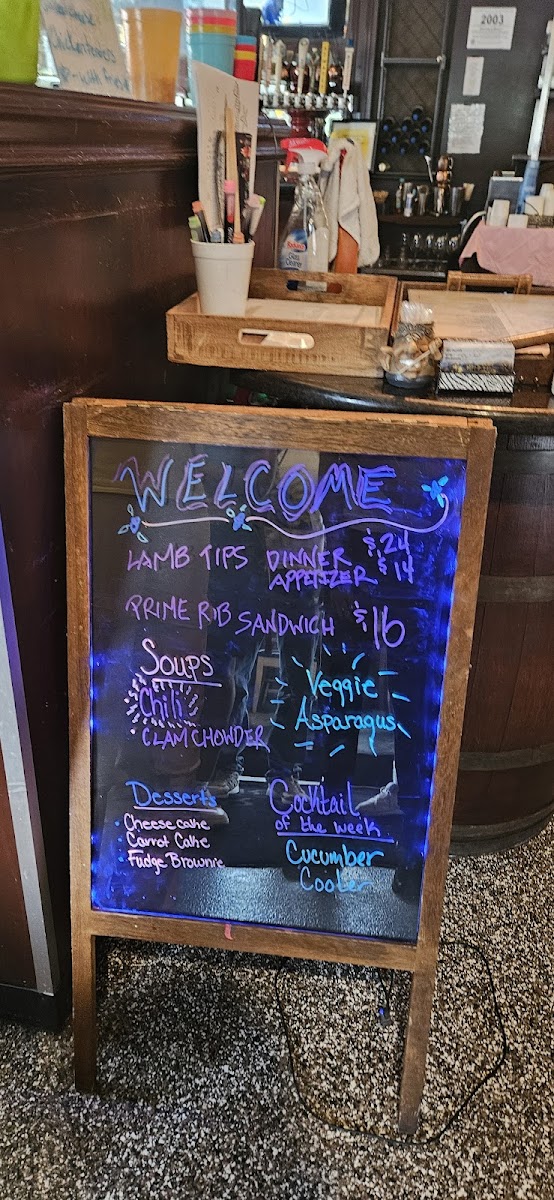 2003
WELCOME
LAMB TIPS DINNER $24
APPETIZER $14
PRIME RIB SANDWICH $16
Soups
Chili
• CLAM CHOWDER
Veggie
Asparagus
Desserts
• Cheesecake
• Carrot Cake
• Fudge Brownie
Cocktail
of the week
Cucumber
Cooler